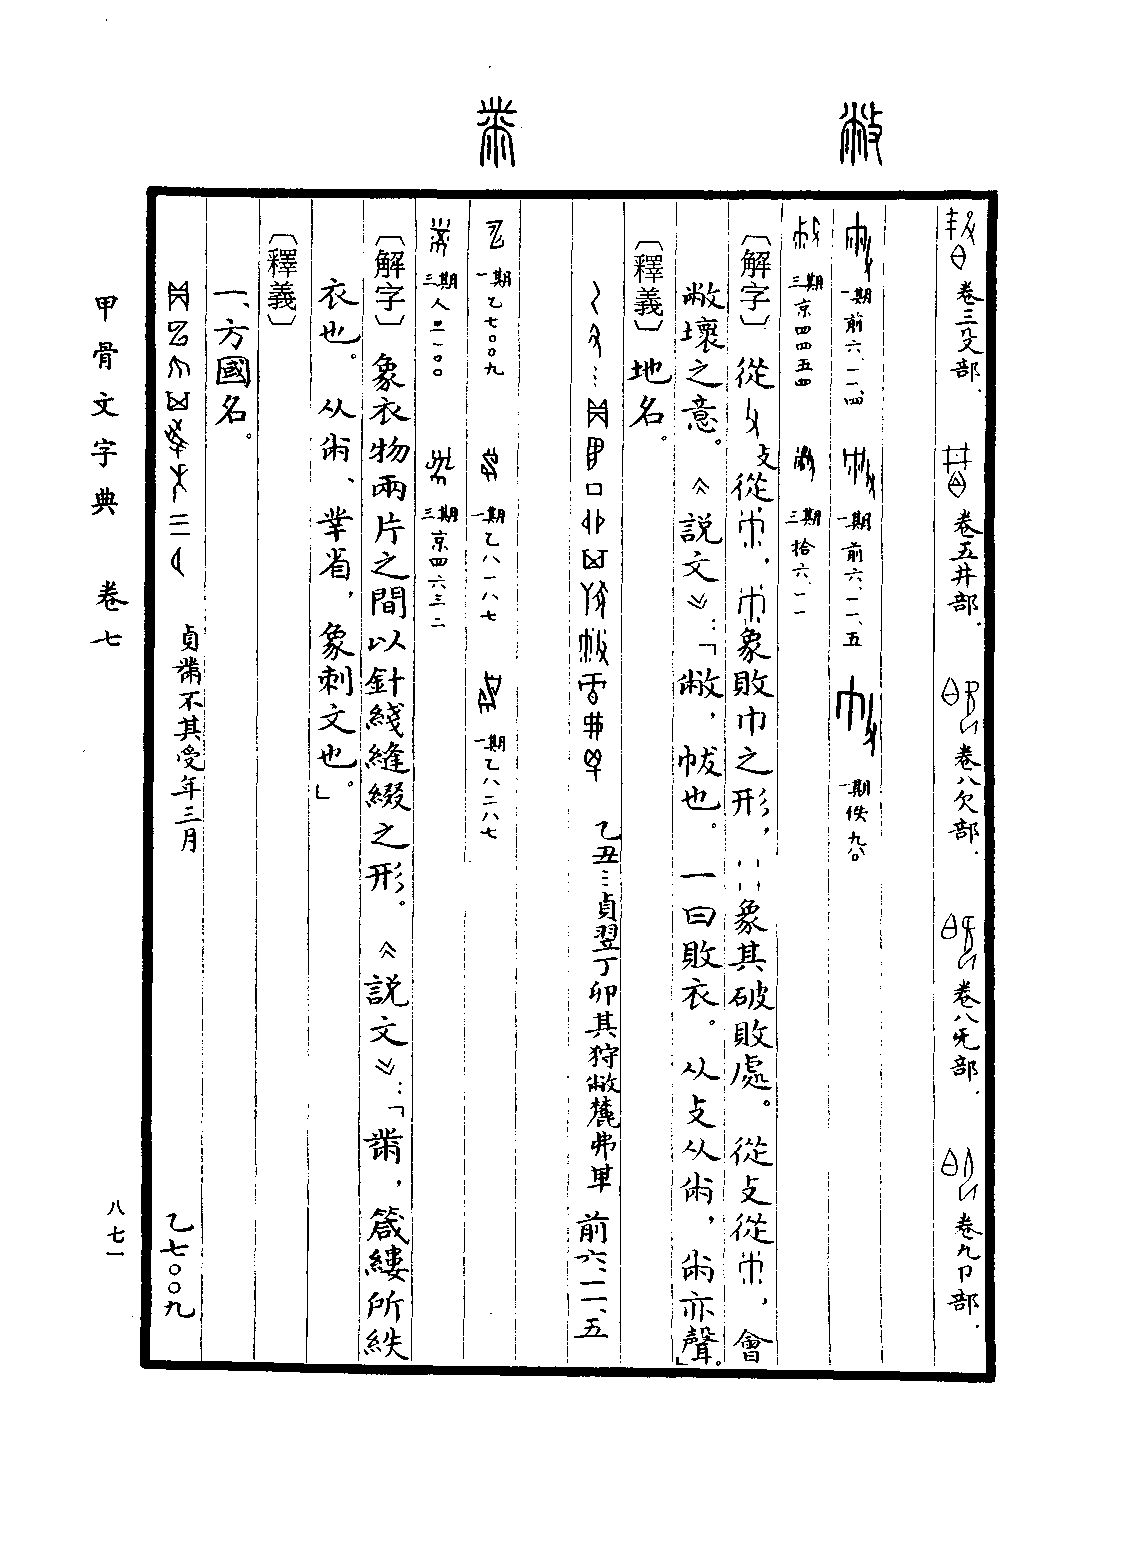 敝
黹
卷三殳部．
卷五井部．
卷八欠部．
卷八旡部．
卷九卩部．
一期 前六．一一．四
一期 前六．一一．五
一期 佚九八〇
三期 京四四五四
三期 拾六．一一
〔解字〕從攴從㡀，㡀象敗巾之形，象其破敗處。從攴從㡀，會
敝壞之意。《說文》：「敝，帗也。一曰敗衣。从攴从㡀，㡀亦聲。」
〔釋義〕地名。
乙丑…貞翌丁卯其狩敝麓弗𢀛 前六．一一．五
一期 乙七〇〇九
一期 乙八一八七
一期 乙八二八七
三期 人二一〇〇
三期 京四六三二
〔解字〕象衣物兩片之間以針綫縫綴之形。《說文》：「黹，箴縷所紩
衣也。从㡀、丵省，象刺文也。」
〔釋義〕
一、方國名。
貞黹不其受年三月 乙七〇〇九
甲骨文字典 卷七
八七一